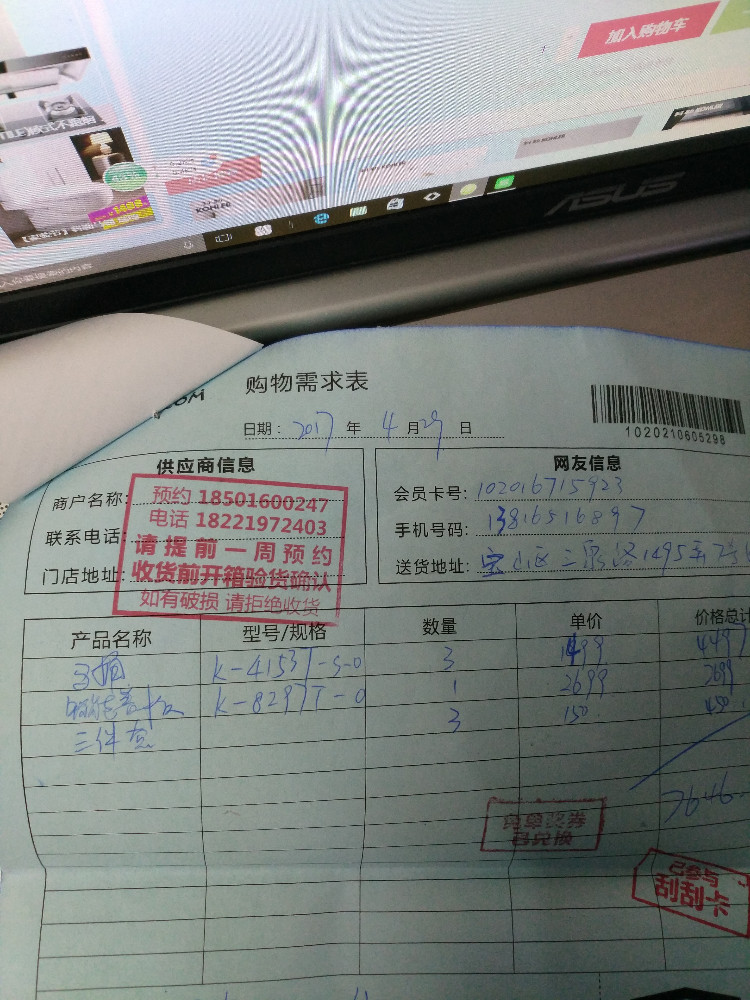 加入购物车
KOHLER
ASUS
购物需求表
日期: 2017 年 4 月 29 日
1020210605298
供应商信息
商户名称:
联系电话:
门店地址:
预约 18501600247
电话 18221972403
请提前一周预约
收货前开箱验货确认
如有破损 请拒绝收货
网友信息
会员卡号: 102016715923
手机号码: 13816516897
送货地址: 宝山区三泉路1495弄7号
产品名称 型号/规格 数量 单价 价格总计
K-4153T-S-0 3 1499 4497
K-8297T-0 1 2699 2699
三件套 3 150 450
7646
免单奖券
已兑换
已参与
刮刮卡